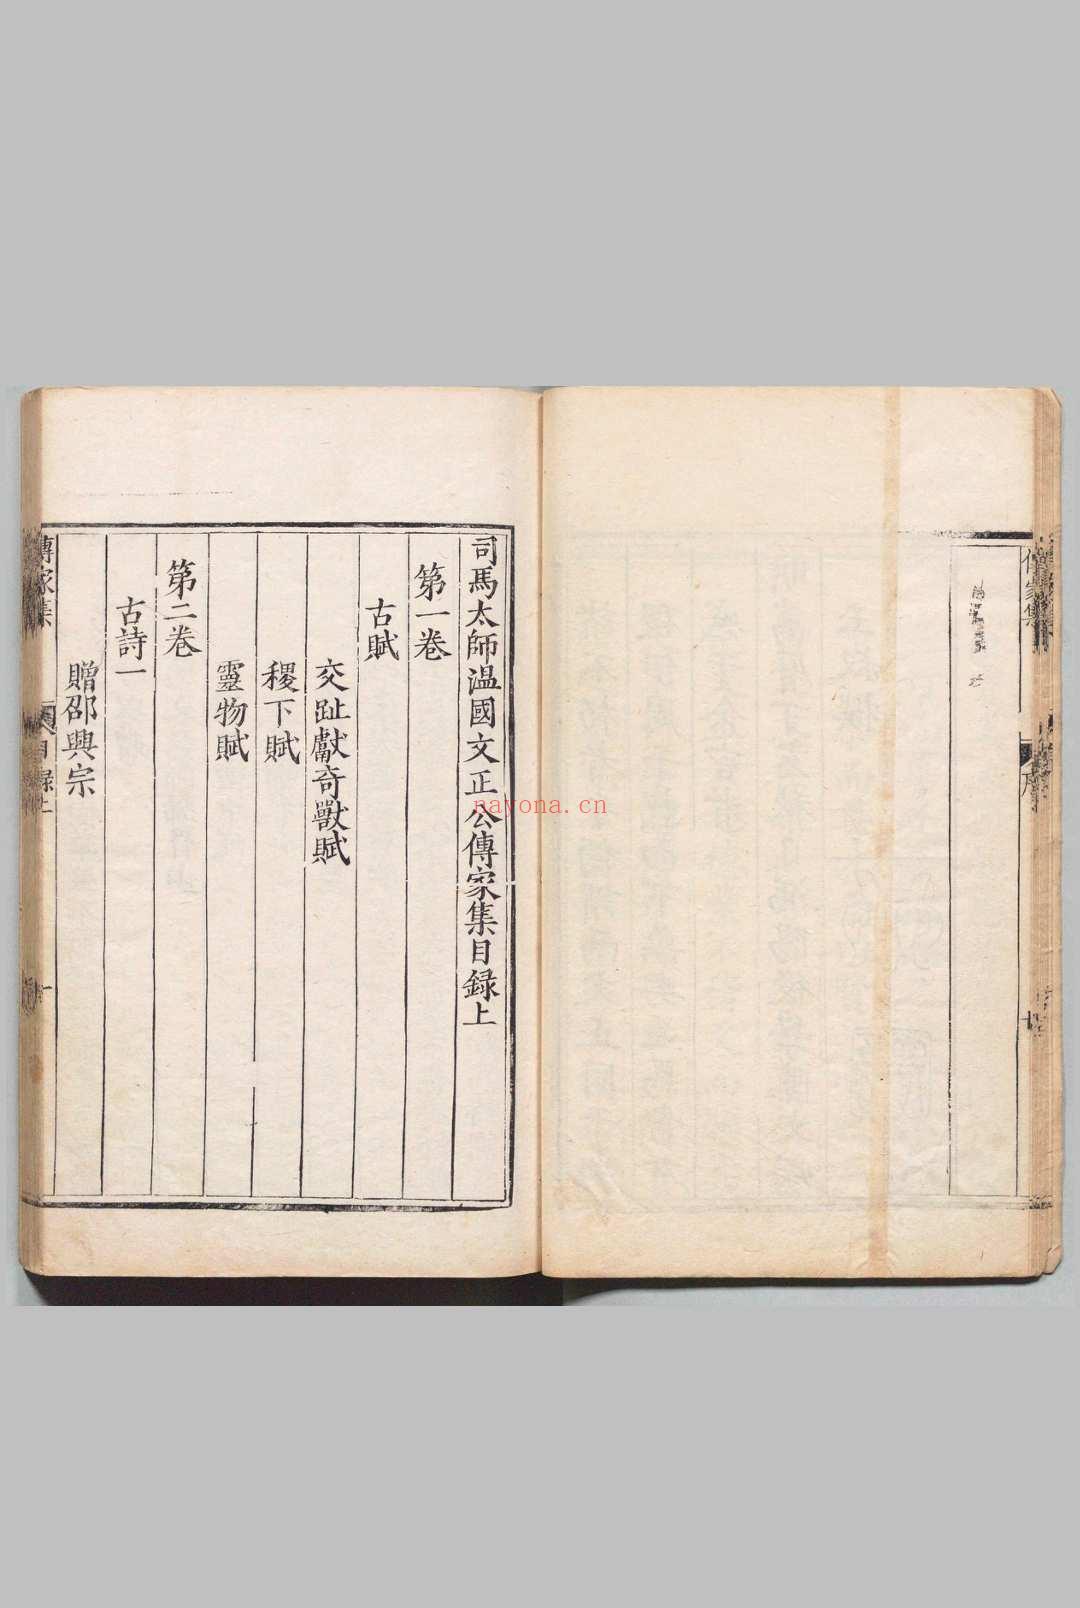 司馬太師温國文正公傳家集目録上
第一卷
古賦
交趾獻奇獸賦
稷下賦
靈物賦
第二卷
古詩一
贈邵興宗
傳家集
目録上
一
傳家集
序
nayona.cn